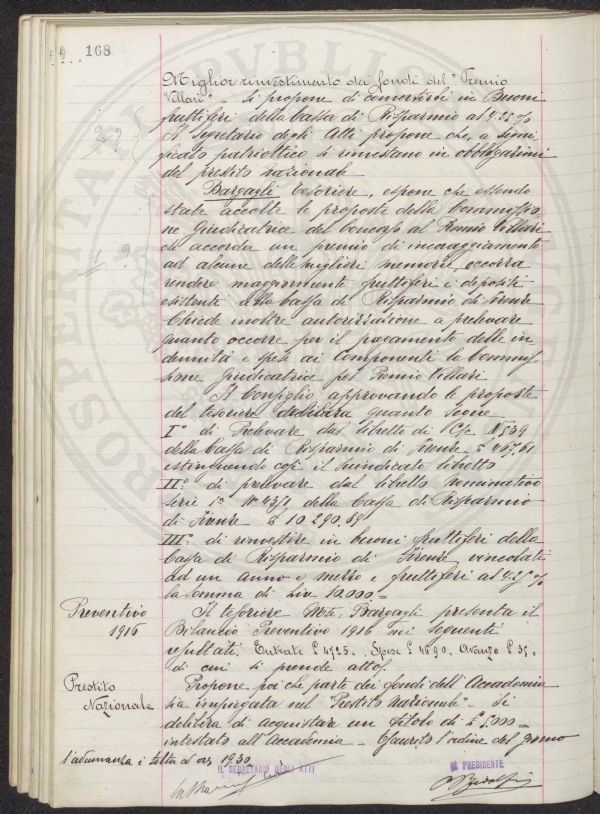 168
Miglior rinvestimento dei fondi del "Premio
Villari" - Si propone di convertirli in Buoni
fruttiferi della Cassa di Risparmio al 4.25%
Il Segretario degli Atti propone che, a signi
ficato patriottico si rinvestano in obbligazioni
del prestito nazionale
Bargagli tesoriere, espone che essendo
state accolte le proposte della Commissio
ne Giudicatrice del Concorso al Premio Villari
che accorda un premio di incoraggiamento
ad alcune delle migliori memorie, occorra
rendere maggiormente fruttiferi i depositi
esistenti alla Cassa di Risparmio di Firenze
Chiede inoltre autorizzazione a prelevare
quanto occorre per il pagamento delle in
dennità e spese ai Componenti la Commis
sione Giudicatrice pel Premio Villari
Il Consiglio approvando le proposte
del tesoriere delibera quanto segue
I° di Prelevare dal libretto di C/c N 539
della Cassa di Risparmio di Firenze £ 467,61
estinguendo così il suindicato libretto
II° di prelevare dal libretto nominativo
serie 1a N° 43/1 della Cassa di Risparmio
di Firenze £ 10.290.89
III° di rinvestire in buoni fruttiferi della
Cassa di Risparmio di Firenze vincolati
ad un anno e mezzo e fruttiferi al 4.25%
la somma di Lire 10.000.=
Preventivo
1916
Il tesoriere Bargagli presenta il
Bilancio Preventivo 1916 nei seguenti
resultati, Entrate £ 4725. Spese £ 4690. Avanzo £ 35.
di cui si prende atto.
Prestito
Nazionale
Propone poi che parte dei fondi dell'Accademia
sia impiegata nel "Prestito nazionale". Si
delibera di acquistare un titolo di £ 5.000 =
intestato all'Accademia. - Esaurito l'ordine del giorno
l'adunanza è tolta a ore 19.30
IL SEGRETARIO DEGLI ATTI
IL PRESIDENTE